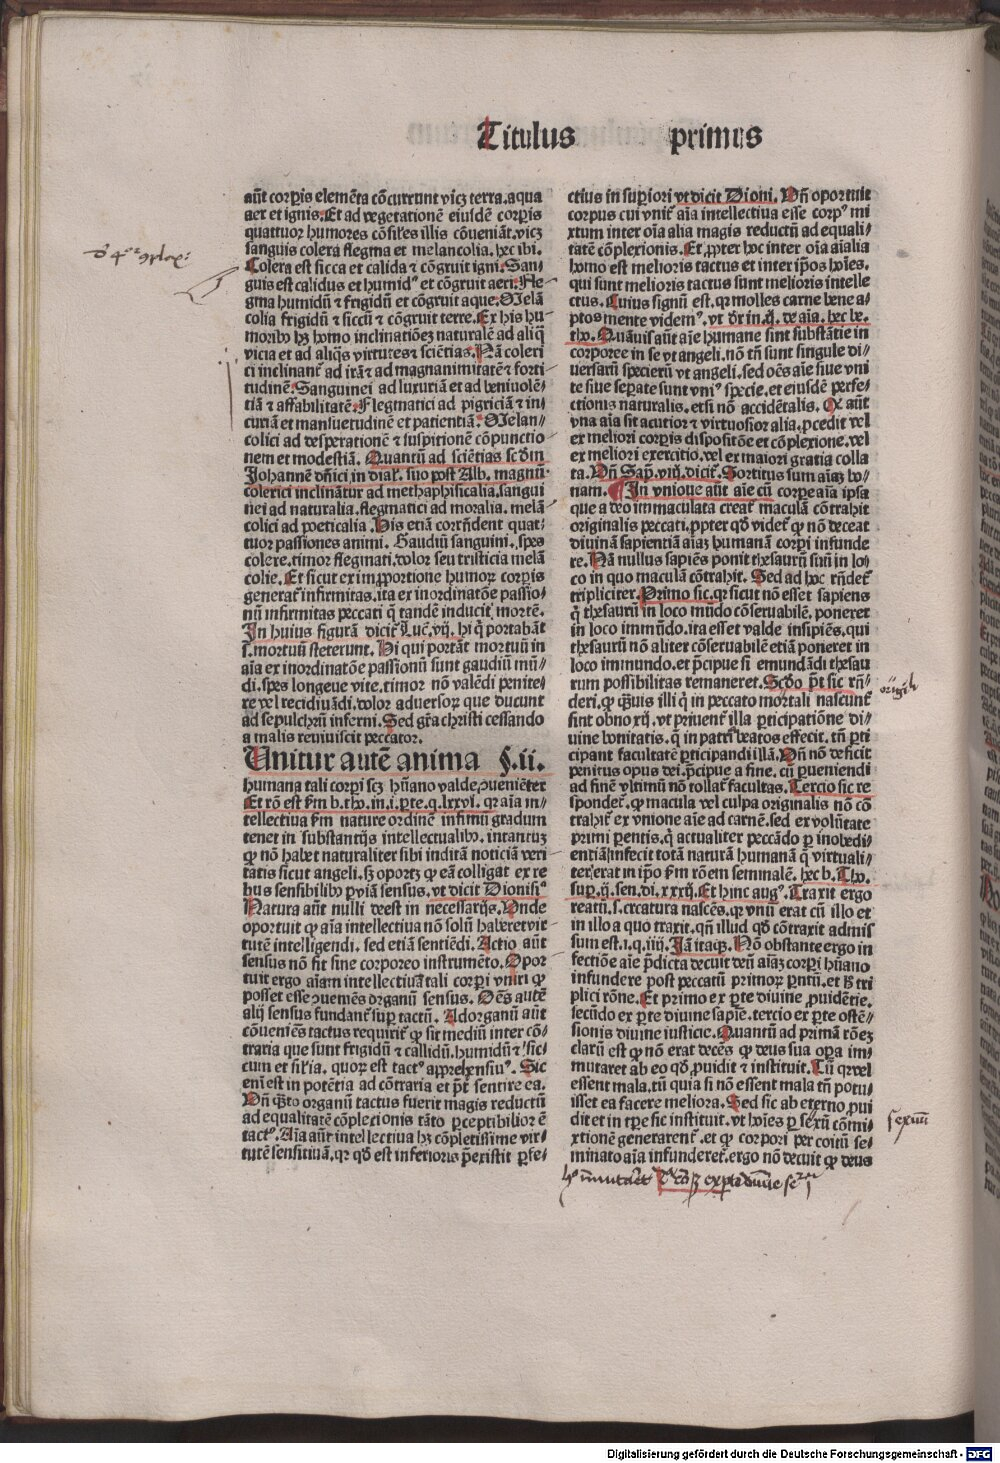 Titulus primus
aūt corpis elemēta cōcurrunt vicꝫ terra.aqua
aer et ignis.Et ad vegetationē eiusdē corpis
quattuor humores cōsiłes illis cōueniāt.vicꝫ
sanguis colera flegma et melancolia.hec ibi.
Colera est sicca et calida ⁊ cōgruit igni.San⸗
guis est calidus et humidꝰ et cōgruit aeri.Fle
gma humidū ⁊ frigidū et cōgruit aque.Melā
colia frigidū ⁊ siccū ⁊ cōgruit terre.Ex his hu⸗
moribꝰ hꝫ homo inclinatiōeꝫ naturalē ad aliq̄
vicia et ad aliq̄s virtutes ⁊ sciētias.Nā coleri
ci inclinant̄ ad irā ⁊ ad magnanimitatē ⁊ forti
tudinē.Sanguinei ad luxuriā et ad beniuolē⸗
tiā ⁊ affabilitatē.Flegmatici ad pigriciā ⁊ in⸗
curiā et mansuetudinē et patientiā.Melan⸗
colici ad desperationē ⁊ suspitionē cōpunctio
nem et modestiā. Quantū ad sciētias sc̄dm
Johannē dn̄ici in dial.suo post Alb.magnū.
colerici inclinātur ad methaphisicalia.sangui
nei ad naturalia.flegmatici ad moralia.melā
colici ad poeticalia.His etiā corrn̄dent quat⸗
tuor passiones animi. Gaudiū sanguini.spes
colere.timor flegmati.dolor seu tristicia melā
colie.Et sicut ex improportione humoꝝ corpis
generat̄ infirmitas.ita ex inordinatōe passio⸗
nū infirmitas peccati q̄ tandē inducit mortē.
In huius figurā dicit̄ Luc.vij.hi q̄ portabāt
s.mortuū steterunt. Hi qui portāt mortuū in
aīa ex inordinatōe passionū sunt gaudiū mū⸗
di.spes longeue vite.timor nō valēdi penite⸗
re vel recidiuādi.dolor aduersoꝝ que ducunt
ad sepulchrū inferni.Sed gr̄a christi cessando
a malis reuiuiscit peccator.
Unitur autē anima §.ii.
humana tali corpori scꝫ hūano valde ꝓuenieter
Et rō est ẜm b.tho.in.i.pte.q.lxxvi.qꝛ aīa in⸗
tellectiua ẜm nature ordinē infimū gradum
tenet in substantijs intellectualibꝰ.intantuꝫ
ꝙ nō habet naturaliter sibi inditā noticiā veri
tatis sicut angeli.sꝫ oportꝫ ꝙ eā colligat ex re
bus sensibilibꝰ p viā sensus.vt dicit Dionisiꝰ
Natura aūt nulli deest in necessarijs.Unde
oportuit ꝙ aīa intellectiua nō solū haberet vir
tutē intelligendi.sed etiā sentiēdi. Actio aūt
sensus nō fit sine corporeo instrumēto. Opor
tuit ergo aīam intellectiuā tali corpori vniri ꝙ
posset esse ꝓuemēs organū sensus. Oēs autē
alij sensus fundant̄ sup tactū. Ad organū aūt
cōueniēs tactus requirit̄ ꝙ sit mediū inter cō⸗
traria que sunt frigidū ⁊ callidū.humidū ⁊ sic⸗
cum et silia.quoꝝ est tactꝰ apprehensiuꝰ. Sic
enī est in potētia ad cōtraria et pōt sentire ea.
Un̄ q̄nto organū tactus fuerit magis reductū
ad equalitatē cōplexionis tāto pceptibilior ē
tactꝰ.Aīa aūt intellectiua hꝫ cōpletissime vir⸗
tutē sensitiuā.qꝛ qd̄ est inferioris pexistit pfe⸗
ctius in supiori vt dicit Dioni. Un̄ oportuit
corpus cui vnit̄ aīa intellectiua esse corpꝰ mi
xtum inter oīa alia magis reductū ad equali⸗
tatē cōplexionis.Et ꝓpter hoc inter oīa aīalia
homo est melioris tactus et inter ipos hoīes.
qui sunt melioris tactus sunt melioris intelle
ctus. Cuius signū est.qꝛ molles carne bene a⸗
ptos mente videmꝰ.vt dr̄ in.ij.de aīa.hec be.
tho.Quāuis aūt aīe humane sint substātie in
corporee in se vt angeli.nō tn̄ sunt singule di⸗
uersarū specierū vt angeli.sed oēs aīe siue vni
te siue sepate sunt vniꝰ specie.et eiusdē perfe⸗
ctionis naturalis.etsi nō accidētalis. Qꝛ aūt
vna aīa sit acutior ⁊ virtuosior alia.pcedit vel
ex meliori corpis dispositōe et cōplexione.vel
ex meliori exercitio.vel ex maiori gratia colla
ta.Un̄ Sap.viij.dicit.Sortitus sum aīaꝫ bo⸗
nam. ¶ In vnioue aūt aīe cū corpe aīa ipsa
que a deo immaculata creat̄ maculā cōtrahit
originalis peccati.ꝓpter qd̄ videt̄ ꝙ nō deceat
diuinā sapientiā aīaꝫ humanā corpi infunde
re.Nā nullus sapiēs ponit thesaurū suū in lo⸗
co in quo maculā cōtrahit. Sed ad hoc rn̄det̄
tripliciter.Primo sic.qꝛ sicut nō esset sapiens
q̄ thesaurū in loco mūdo cōseruabilē.poneret
in loco immūdo.ita esset valde insipiēs.qui
thesaurū nō aliter cōseruabilē etiā poneret in
loco immundo.et pcipue si emundādi thesau
rum possibilitas remaneret.Sc̄do pōt sic rn̄⸗
deri.ꝙ q̄uis illi q̄ in peccato mortali nascunt̄
sint obnoxij.vt priuent̄ illa pticipatiōne di⸗
uine bonitatis.q̄ in patrīa beatos effecit.tn̄ pti
cipant facultatē pticipandi illā.Un̄ nō deficit
penitus opus dei.pcipue a fine.cū pueniendi
ad finē vltimū nō tollat̄ facultas.Tercio sic re
spondet̄.ꝙ macula vel culpa originalis nō cō
trahit̄ ex vnione aīe ad carnē.sed ex volūtate
primi pentis.q̄ actualiter peccādo p inobedi⸗
entiā infecit totā naturā humanā q̄ virtuali⸗
ter erat in ipo ẜm rōem seminalē.hec b.Tho.
sup.ij.sen.di.xxxij.Et hinc augꝰ.Traxit ergo
reatū.s.creatura nascēs.qꝛ vnū erat cū illo et
in illo a quo traxit.qn̄ illud qd̄ cōtraxit admis
sum est.i.q.iiij.Iā itaqꝫ. Nō obstante ergo in
fectiōe aīe pdicta decuit deū aīaꝫ corpi hūano
infundere post peccatū primoꝝ pntū.et h̄ tri
plici rōne.Et primo ex pte diuine ꝓuidētie.
secūdo ex pte diuine sapīe.tercio ex pte ostē⸗
sionis diuine iusticie.Quantū ad primā rōeꝫ
clarū est ꝙ nō erat decēs ꝙ deus sua opa im⸗
mutaret ab eo qd̄ ꝓuidit ⁊ instituit. Tū qꝛ vel
essent mala.tū quia si nō essent mala tn̄ potu⸗
isset ea facere meliora.Sed sic ab eterno ꝓui
dit et in tpe sic instituit.vt hoīes p sexū cōmi⸗
xtionē generarent̄.et ꝙ corpori per coitū se⸗
minato aīa infunderet̄.ergo nō decuit ꝙ deus
sexuū